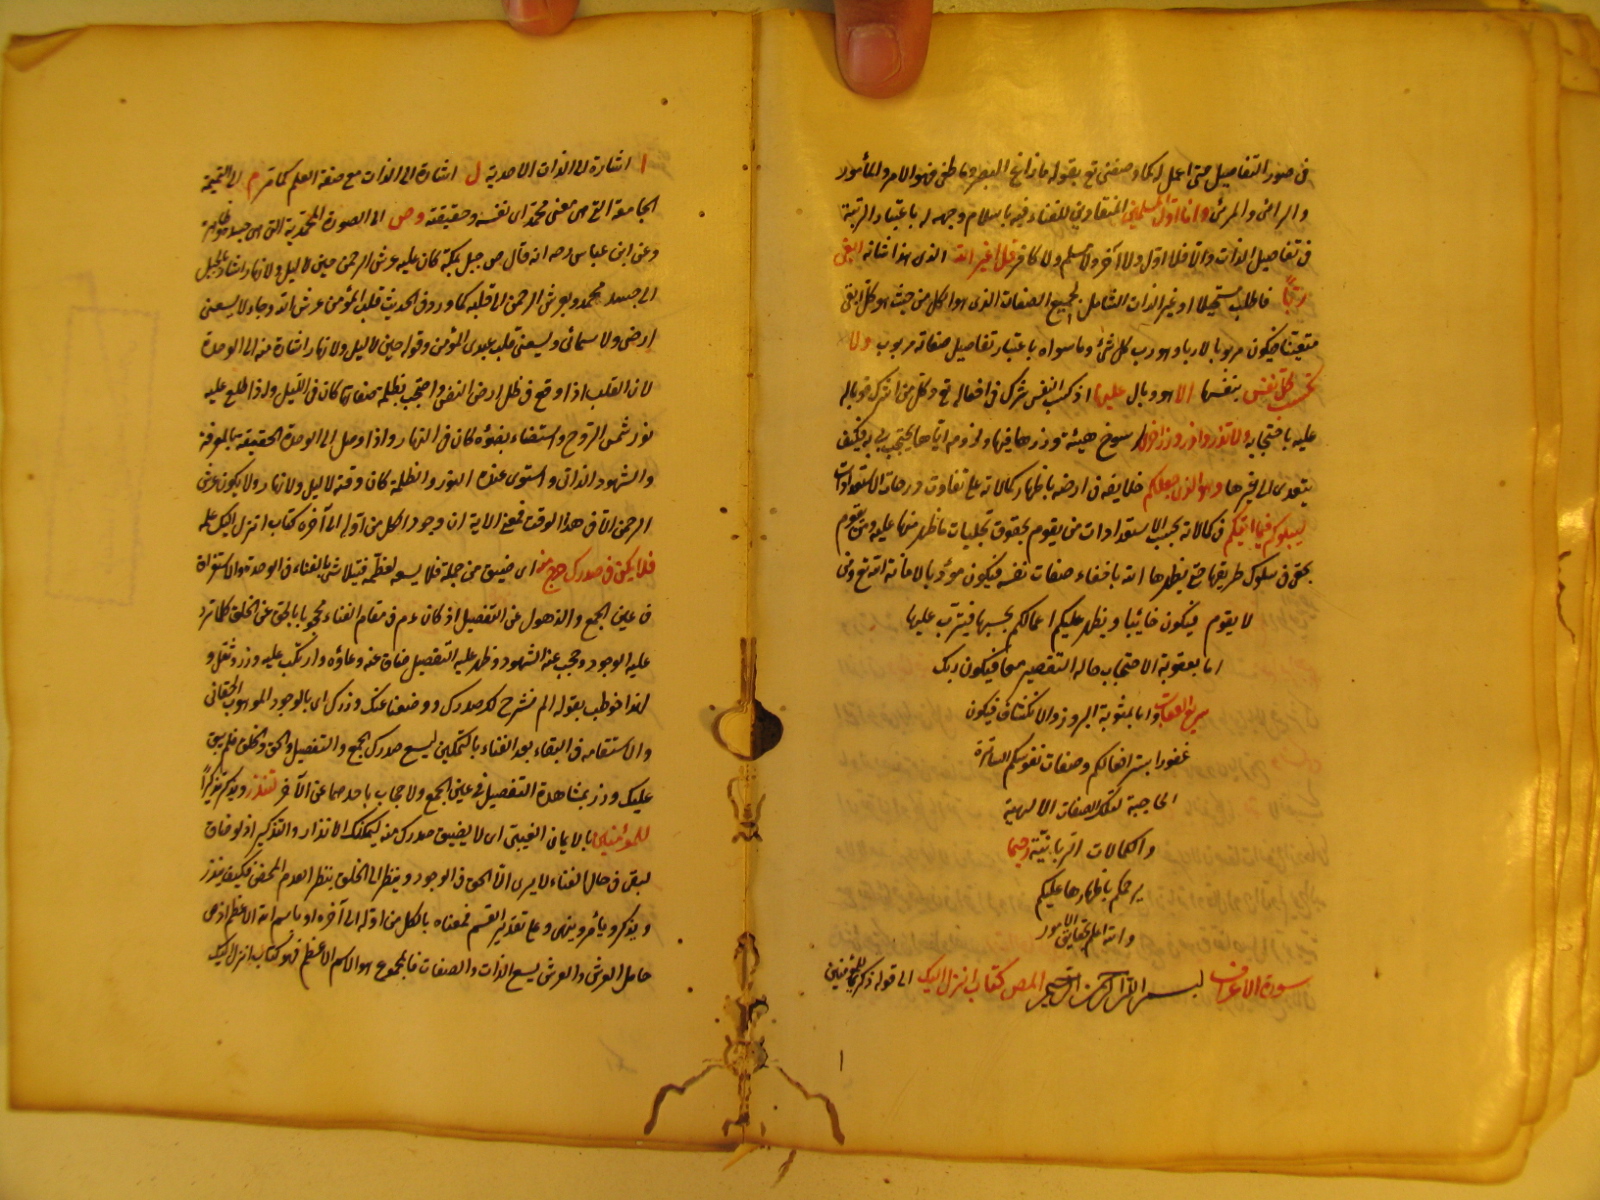 فى صور التفاصيل حتى اعمل له كما وصفنى تع بقوله ما زاغ البصر وما طغى فهو الامر والمأمور
والرائى والمرئى وانا اول المسلمين المنقادين للفناء فيه باسلام وجهى له باعتبار الرتبة
فى تفاصيل الذات والا فلا اول ولا آخر ولا مسلم ولا كافر قل اغير الله الذى هذا شانه ابغى
ربا فاطلب مستحيلا او غير الذات الشامل لجميع الصفات الذى هو الكل من حيث هو كل ابغى
متعينا فيكون مربوبا لا ربا وهو رب كل شئ وما سواه باعتبار تفاصيل صفاته مربوب ولا
تكسب كل نفس بنفسها الا هو وبال عليها اذ كسب النفس شرك فى افعاله تع وكل من اشرك فوباله
عليه باحتجابه ولا تزر وازرة وزر اخرى لرسوخ هيئة وزرها فيها ولزومه اياها يحتجب بـه فكيف
يتعدى الى غيرها وهو الذى جعلكم خلايف فى ارضه باظهار كمالاته على تفاوت درجات الاستعدادات
ليبلوكم فيما اتيكم فى كمالاته بحسب الاستعدادات من يقوم بحقوق تجليات ما ظهر منها عليه ومن يقوم
بحق فى سلوك طريقها حتى يظهرها الله باخفاء صفات نفسه فيكون مؤد بالامانة الله تع ومن
لا يقوم فيكون خائنا ويظهر عليكم اعمالكم بحسبها فيترتب عليها
اما بعقوبة الاحتجاب حاله التقصير معا فيكون ربك
سريع العقاب واما بمثوبة البروز والانكشاف فيكون
غفورا يستر افعالكم وصفات نفوسكم الساترة
الحاجبة لتلك الصفات الالهية
والكمالات الربانية رحيما
يرحمكم باظهارها عليكم
والله اعلم بحقايق الامور
سورة الاعراف بسم الله الرحمن الرحيم المص كتاب انزل اليك الى قوله ذكرى للمؤمنين
ا اشارة الى الذات الاحدية ل اشارة الى الذات مع صفة العلم كما مر م الى التميمة
الجامعة التى هى معنى محمد اى نفسه وحقيقته وص الى الصورة المحمدية التى هى جسده وظاهره
وعن ابن عباس رضه انه قال ص جبل بمكة كان عليه عرش الرحمن حين لا ليل ولا نهار اشار بالجبل
الى جسد محمد وبعرش الرحمن الى قلبه كما ورد فى الحديث قلب المؤمن عرش الله وجاء لا يسعنى
ارضى ولا سمائى ويسعنى قلب عبدى المؤمن وقوله حين لا ليل ولا نهار اشارة منه الى الوحدة
لان القلب اذا وقع فى ظل ارض النفس واحتجب بظلمة صفاتها كان فى الليل واذا طلع عليه
نور شمس الروح واستضاء بضوئه كان فى النهار واذا وصل الى الوحدة الحقيقية بالمعرفة
والشهود الذاتى واستوى عنده النور والظلمة كان وقته لا ليل ولا نهار ولا يكون عرش
الرحمن الا فى هذا الوقت فمعنى الاية ان وجود الكل من اوله الى آخره كتاب انزل اليك علمه
فلا يكن فى صدرك حرج منه اى ضيق من حمله فلا يسعه لعظمه فيتلاشى بالفناء فى الوحدة والاستغراق
فى عين الجمع والذهول عن التفصيل اذ كان عم فى مقام الفناء محجوبا بالحق عن الخلق كلما رد
عليه الوجود وحجب عنه الشهود وظهر عليه التفصيل ضاق عنه وعاؤه وارتكب عليه وزر وثقل و
لهذا خوطب بقوله الم نشرح لك صدرك ووضعنا عنك وزرك اى بالوجود الموهوب الحقانى
والاستقامه فى البقاء بعد الفناء بالتمكين ليسع صدرك الجمع والتفصيل والحق والخلق فلم يبق
عليك وزر بمشاهدة التفصيل فى عين الجمع ولا حجاب باحدهما عن الآخر لتنذر وتذكر تذكيرا
للمؤمنين بالايمان الغيبى اى لا يضيق صدرك منه ليمكنك الانذار والتذكير اذ لو ضاق
لبقى فى حال الفناء لا يرى الا الحق فى الوجود وينظر الى الخلق بنظر العدم المحض فكيف ينذر
ويذكر ويأمر وينهى وعلى تقدير القسم فمعناه بالكل من اوله الى آخره او باسم الله الاعظم اذ ص
حامل العرش والعرش يسع الذات والصفات فالمجموع هو الاسم الاعظم فهو كتاب انزل اليك